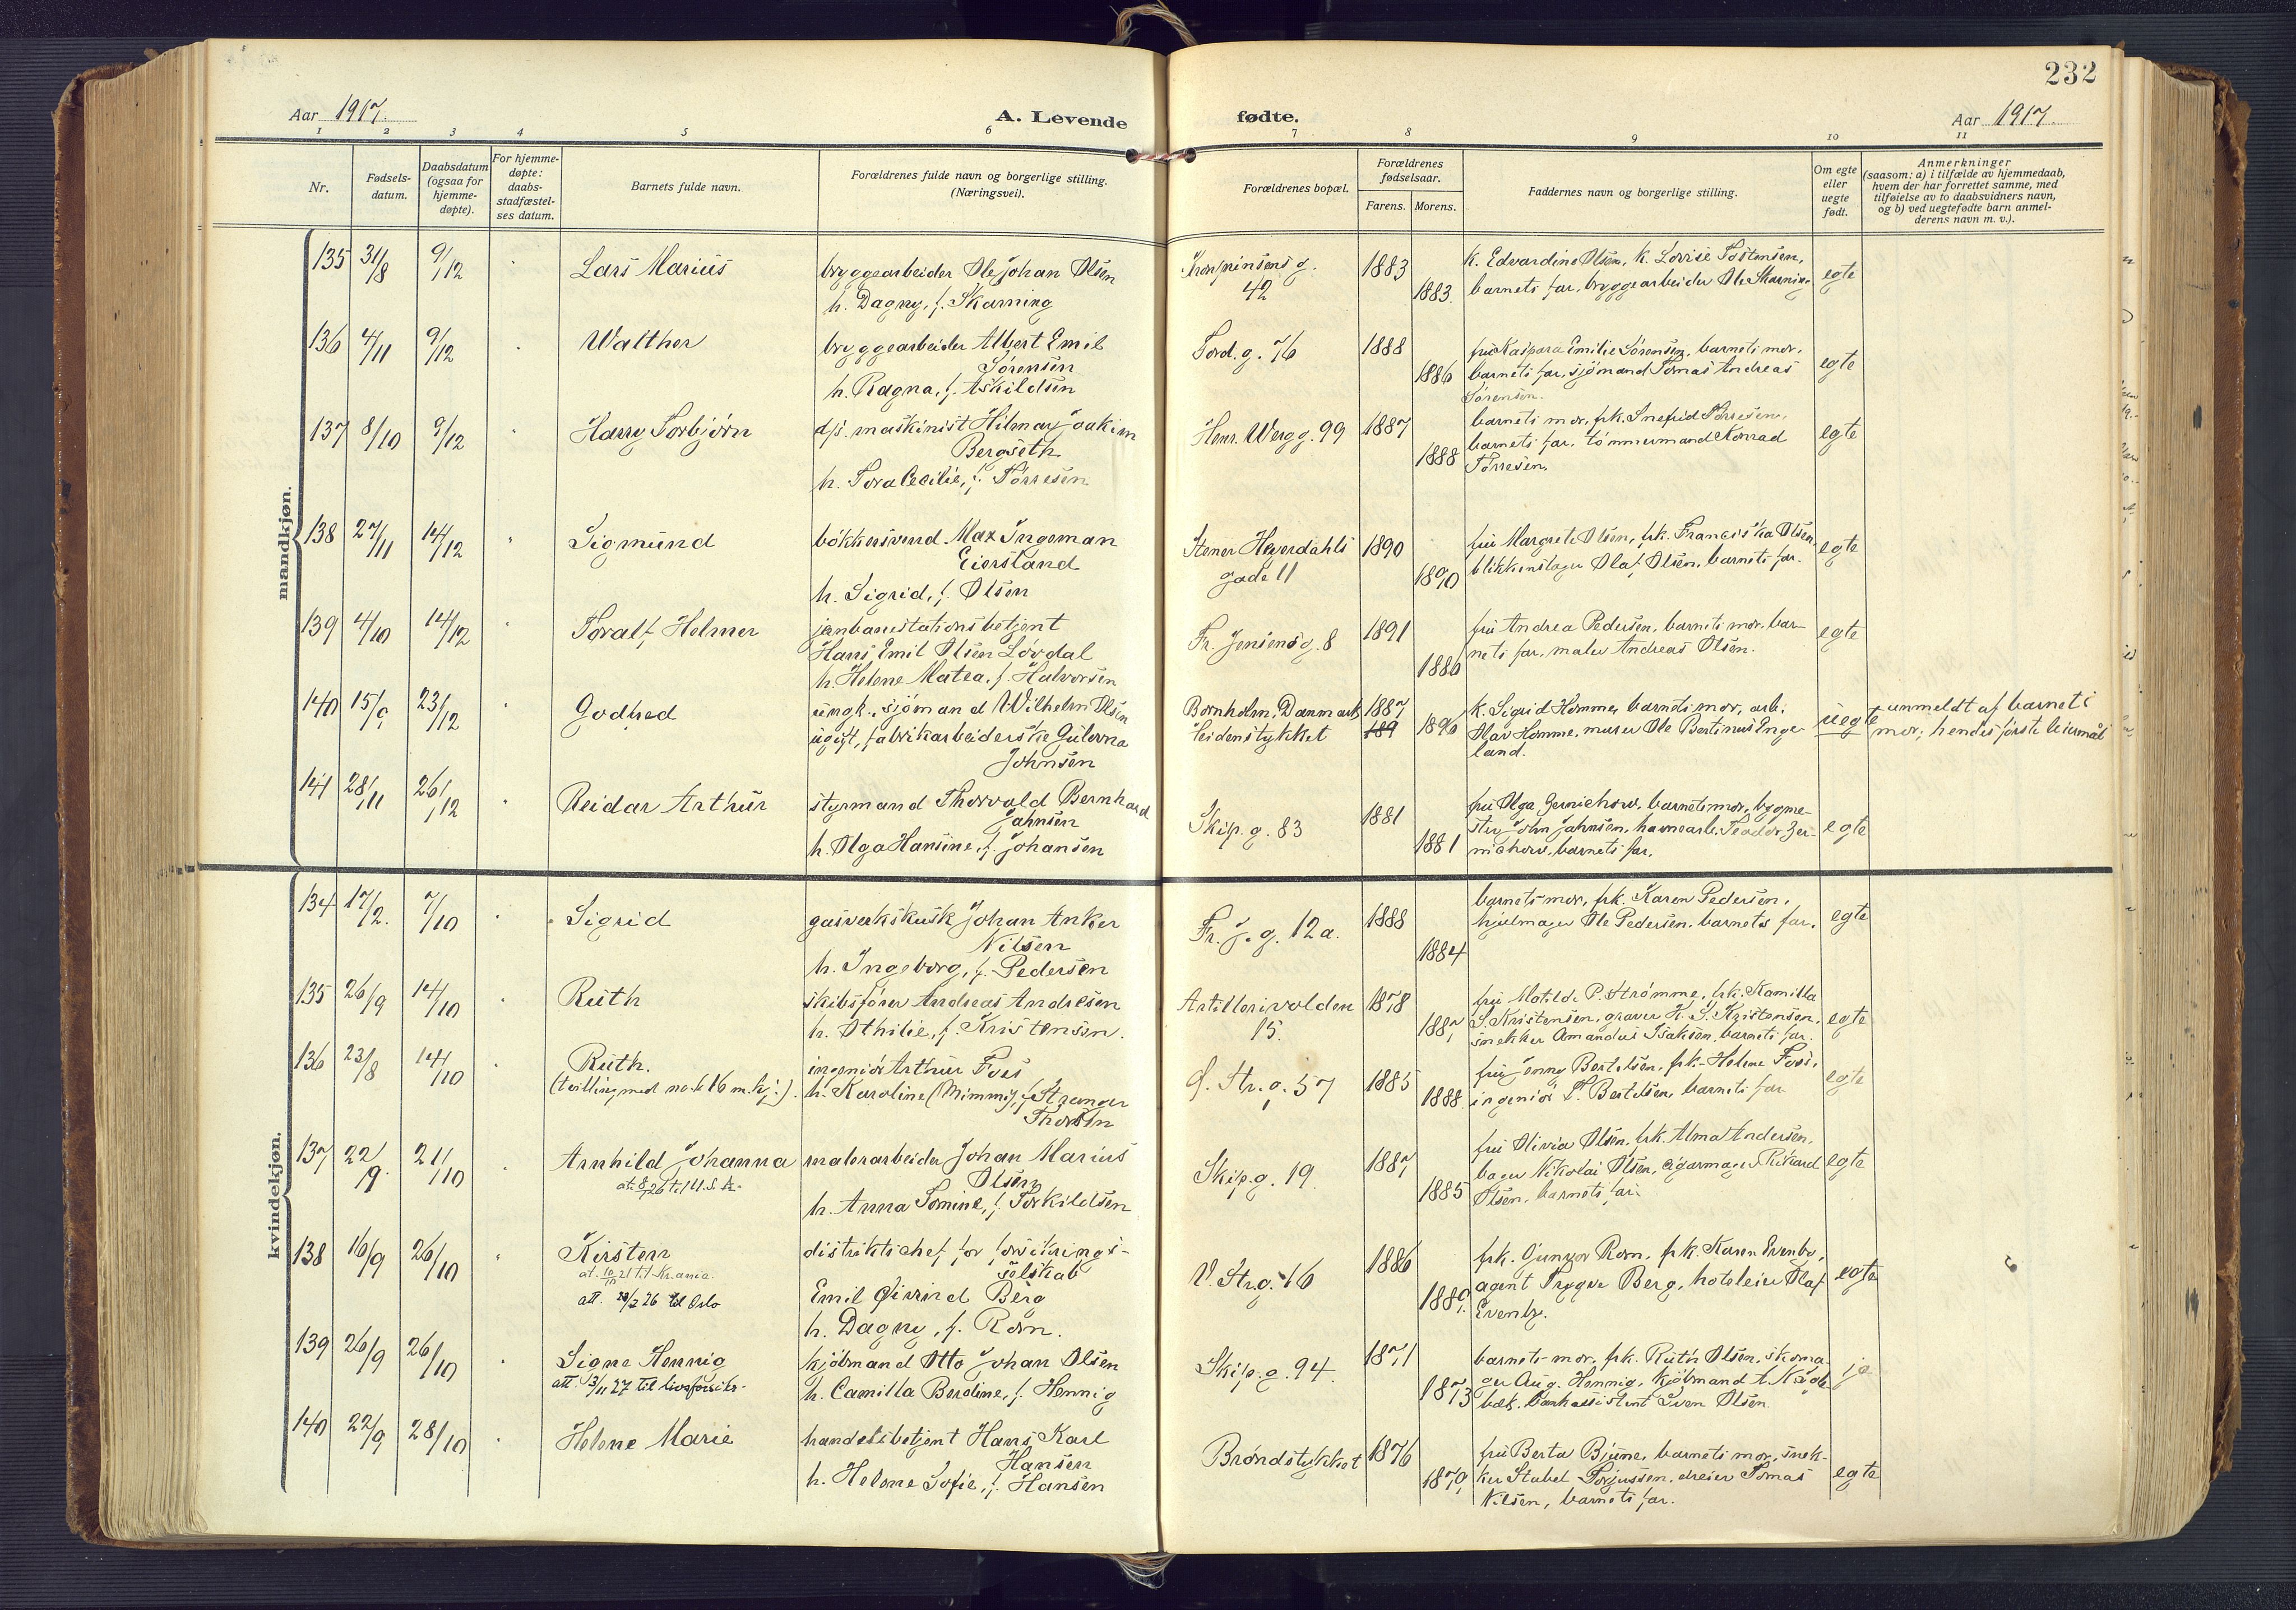 232
Aar 1917.
A. Levende fødte.
Aar 1917.
1 2 3 4 5 6 7 8 9 10 11
Nr.
Fødsels-
datum.
Daabsdatum
(ogsaa for
hjemme-
døpte).
For hjemme-
døpte:
daabs-
stadfæstel-
ses datum.
Barnets fulde navn.
Forældrenes fulde navn og borgerlige stilling.
(Næringsvei).
Forældrenes bopæl.
Forældrenes
fødselsaar.
Farens. Morens.
Faddernes navn og borgerlige stilling.
Om egte
eller
uegte
født.
Anmerkninger
(saasom: a) i tilfælde av hjemmedaab,
hvem der har forrettet samme, med
tilføielse av to daabsvidners navn,
og b) ved uegtefødte barn anmel-
derens navn m. v.).
mandkjøn.
135 31/8 9/12 Lars Marius
bryggearbeider Ole Johan Olsen
h. Dagny, f. Skarning
Kronprinsensg.
42
1883
1883.
k. Edvardine Olsen, k. Lovise Tostensen,
barnets far, bryggearbeider Ole Skarning
egte
136 4/11 9/12 Walther
bryggearbeider Albert Emil
Sørensen
h. Ragna, f. Askildsen
Tord. g. 76
1888
1886
fru Kaspara Emilie Sørensen, barnets mor,
barnets far, sjømand Tomas Andreas
Sørensen.
egte
137 8/10 9/12 Harry Torbjørn
d/s. maskinist Hilmar Joakim
Bergseth
h. Tora Cecilie, f. Tørresen
Henr. Werg g. 99
1887
1888
barnets mor, frk. Snefrid Tørresen,
barnets far, tømmermand Konrad
Tørresen.
egte
138 27/11 14/12 Sigmund
bøkkersvend Max Ingeman
Eiersland
h. Sigrid, f. Olsen
Stener Heyerdahls
gade 11
1890
1890
fru Margrete Olsen, frk. Franciska Olsen,
blikkenslager Olaf Olsen, barnets far.
egte
139 4/10 14/12 Toralf Helmer
jernbanestationsbetjent
Hans Emil Olsen Løvdal
h. Helene Matea, f. Halvorsen
Fr. Jensens g. 8
1891
1886
fru Andrea Pedersen, barnets mor, bar-
nets far, maler Andreas Olsen.
egte
140 15/9 23/12 Godtred
ungk., sjømand Wilhelm Olsen
ugift, fabrikarbeiderske Gulovna
Johnsen
Bornholm, Danmark
Heidenstykket
1887
189
1896
k. Sigrid Homme, barnets mor, arb.
Olav Homme, murer Ole Bertinus Enge-
land.
uegte
anmeldt af barnets
mor; hendes første leiermaal
141 28/11 26/12 Reidar Arthur
styrmand Thorvald Bernhard
Jahnsen
h. Olga Hansine, f. Johansen
Skip. g. 83
1881
1881
fru Olga Gernichow, barnets mor, bygme-
ster John Jahnsen, havnearb. Teodor Jer-
nichow, barnets far.
egte
kvindekjøn.
134 17/2. 7/10 Sigrid
gasverkskusk Johan Anker
Nilsen
h. Ingeborg, f. Pedersen
Fr. J. g. 12a.
1888
1884
barnets mor, frk. Karen Pedersen,
hjulmager Ole Pedersen, barnets far.
egte
135 26/9 14/10 Ruth
skibsfører Andreas Andresen
h. Othilie, f. Kristensen.
Artillerivolden
15.
1878
1887
fru Matilde P. Strømme, frk. Kamilla
S. Kristensen, graver K. S. Kristensen,
snekker Amandus Isaksen, barnets far.
egte
136 23/8 14/10 Ruth.
(tvilling med no. 116 m.kj.).
ingeniør Arthur Foss
h. Karoline (Mimmi), f. Stranger
Thorsen
Ø. Str. g. 57
1885
1888.
fru Jenny Bertelsen, frk. Helene Foss,
ingeniør T. Bertelsen, barnets far
egte
137 22/9. 21/10 Arnhild Johanna
malerarbeider Johan Marius
Olsen
h. Anna Tomine, f. Torkildsen
Skip. g. 19.
1887
1885
fru Olivia Olsen, frk. Alma Andersen,
bager Nikolai Olsen, cigarmager Rikard
Olsen, barnets far.
egte
138 16/9 26/10 Kirsten
at. 10/10 21 til Kr.ania.
att. 23/2 26 til Oslo
distriktschef for forsikrings-
selskab
Emil Øivind Berg
h. Dagny, f. Rorn.
V. Str. g. 16
1886
1889.
frk. Gunvor Rorn, frk. Karen Evenby,
agent Trygve Berg, hoteleier Olaf
Evenby.
egte
139 26/9 26/10 Signe Hennig
att. 3/11 27 til livsforsikr.
kjøbmand Otto Johan Olsen
h. Camilla Berdine, f. Hennig
Skip. g. 94.
1871
1873
barnets mor, frk. Ruth Olsen, skoma-
ger Aug. Hennig, kjøbmand
bæk, bankassistent Sven Olsen.
ja
140 22/9 28/10 Helene Marie
handelsbetjent Hans Karl
Hansen
h. Helene Sofie, f. Hansen
Brøndstykket
1876
1879,
fru Berta Bjune, barnets mor, snek-
ker Stubel Torjussen, dreier Tomas
Nilsen, barnets far.
egte